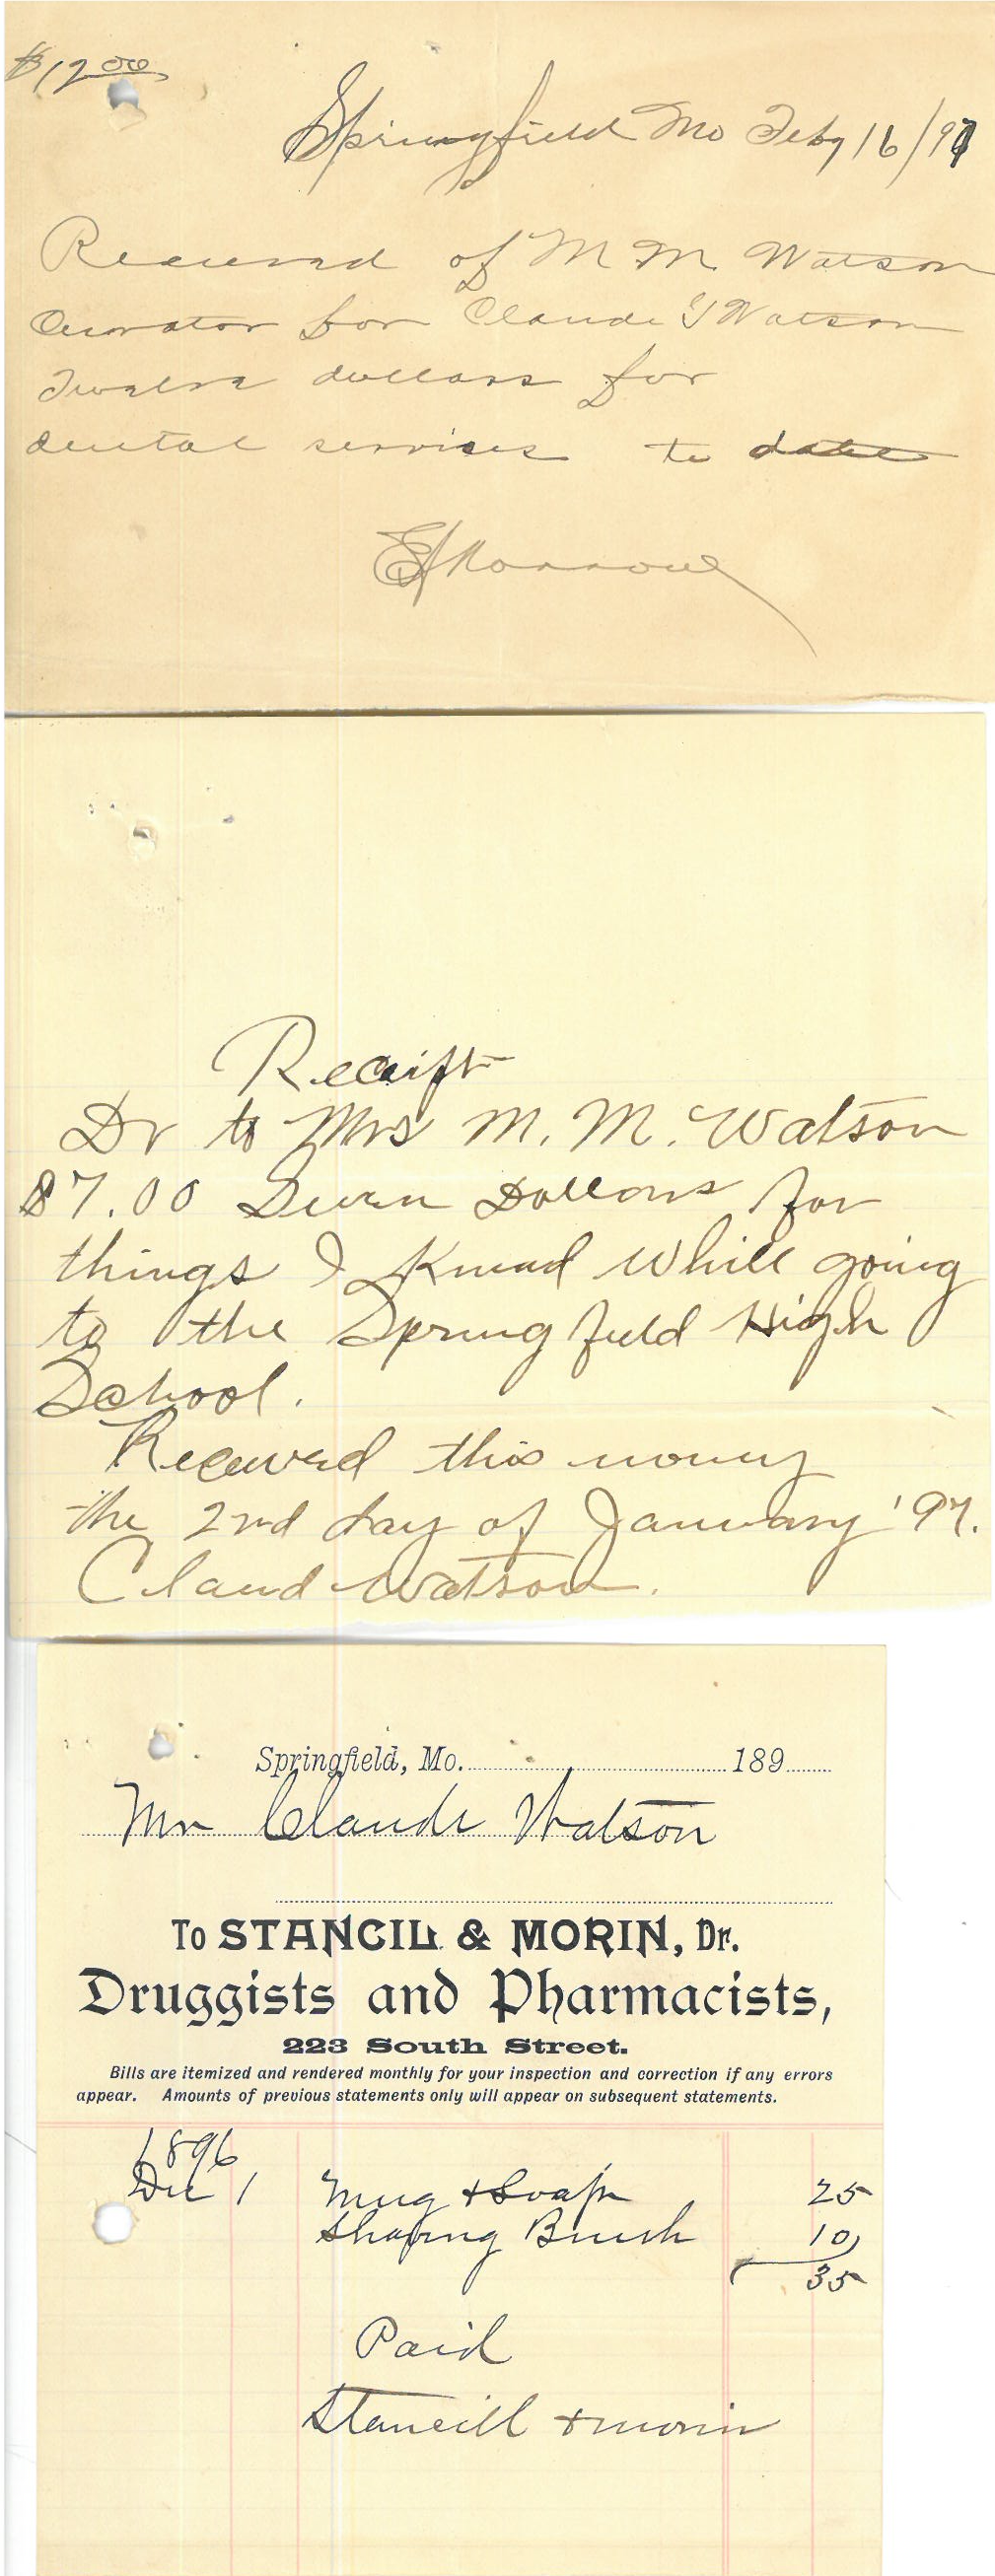 $12.00
Springfield Mo Feby 16/97
Received of M M Watson
Curator for Claude Y Watson
Twelve dollars for
dental services to date
E Morrow
Receift
Dr to Mrs M. M. Watson
$7.00 Seven Dollars for
things I Knead While going
to the Springfield High
School.
Received this money
the 2nd day of January '97.
Claud Watson.
Springfield, Mo. 189
Mr Claude Watson
To STANCILL & MORIN, Dr.
Druggists and Pharmacists,
223 South Street.
Bills are itemized and rendered monthly for your inspection and correction if any errors
appear. Amounts of previous statements only will appear on subsequent statements.
1896
Dec 1 Mug + Soap 25
Shaving Brush 10
35
Paid
Stancill + Morin